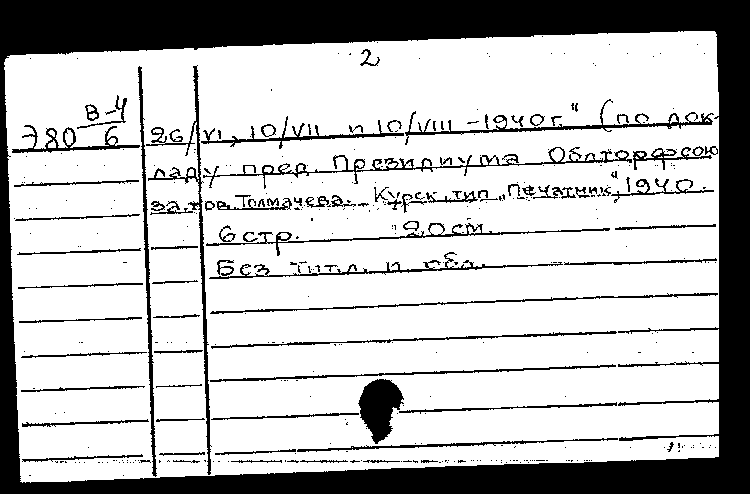 2
В-4
Э80 6 26/VI, 10/VII и 10/VIII-1940г." (по док-
ладу пред. Президиума Облторфсою
за тов. Толмачева. Курск, тип „Печатник", 1940.
6 стр. 20 см.
Без титл. и обл.